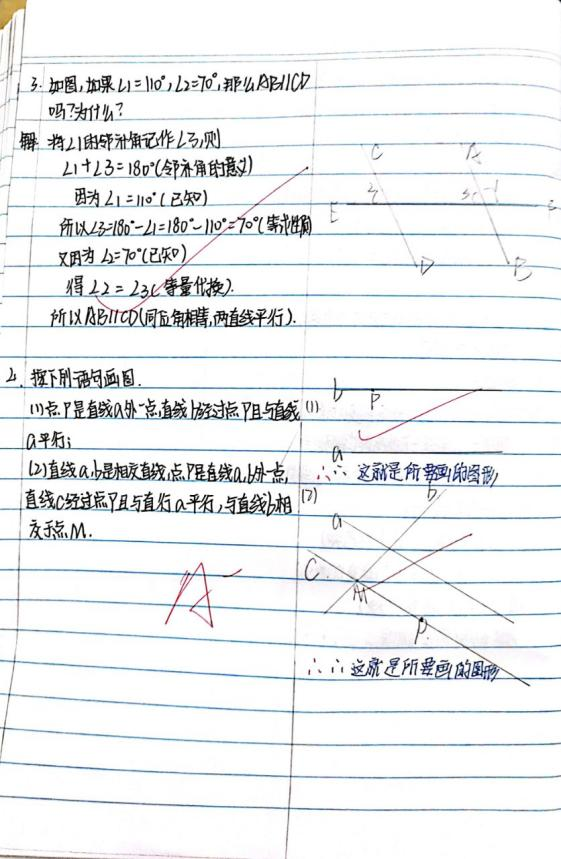 3. 如图,如果∠1=110°,∠2=70°,那么AB∥CD
吗?为什么?
解 将∠1的邻补角记作∠3,则
∠1+∠3=180°(邻补角的意义)
因为∠1=110°(已知)
所以∠3=180°-∠1=180°-110°=70°(等式性质)
又因为∠2=70°(已知)
得∠2=∠3(等量代换).
所以AB∥CD(同位角相等,两直线平行).
C A
E
D B
2. 按下列语句画图.
(1)点P是直线a外一点,直线b经过点P且与直线
a平行;
(2)直线a,b是相交直线,点P是直线a,b外一点,
直线c经过点P且与直行a平行,与直线b相
交于点M.
(1)
b P
a
∴ 这就是所要画的图形
(2)
b
a
C
M
P
∴ 这就是所要画的图形
A-